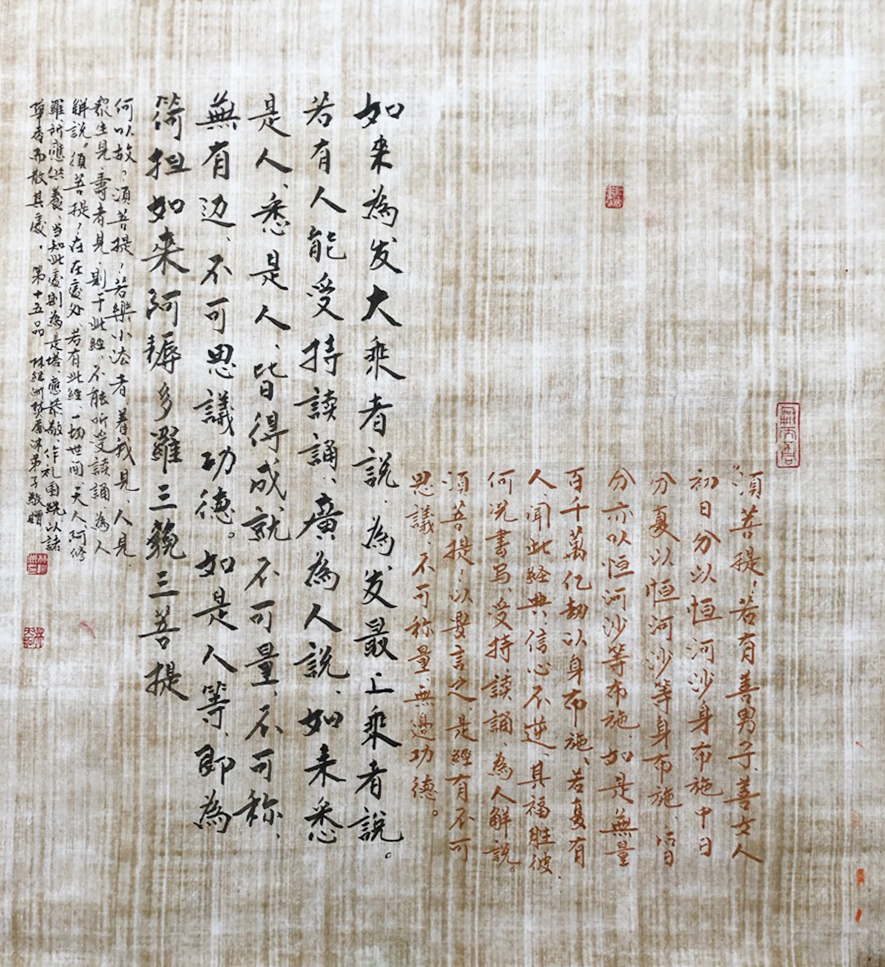 須菩提！若有善男子、善女人
初日分以恒河沙身布施中日
分复以恒河沙等身布施、
分亦以恒河沙等布施如是無量
百千萬亿劫以身布施、若复有
人聞此经典、信心不逆、其福胜彼
何况書写、受持读誦、為人解説。
須菩提！以要言之、是经有不可
思議、不可称量、無邊功德。
如来為发大乘者説、為发最上乘者説。
若有人能受持读誦、廣為人説、如来悉
是人、悉是人、皆得成就不可量、不可称、
無有边、不可思議功德。如是人等、即為
荷担如来阿耨多羅三藐三菩提
何以故？須菩提！若樂小法者、着我見、人見、
衆生見、壽者見、則于此经、不能听受读誦、為人
解説。須菩提！在在處处 若有此经、一切世间 天人阿修
羅所應供養、当知此處則為是塔、應恭敬、作礼圍繞以諸
華香而散其處。第十五品 弟子敬贈